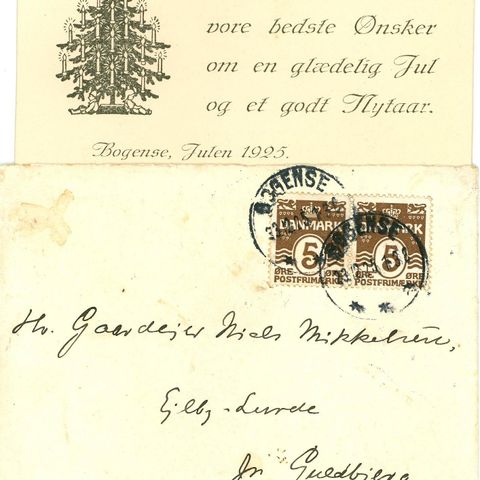 vore bedste Ønsker
om en glædelig Jul
og et godt Nytaar.
Bogense, Julen 1925.
BOGENSE
BOGENSE
DANMARK
5
5
ØRE ØRE
POSTFRIMÆRKE
POSTFRIMÆRKE
Hr. Gaardejer Niels Mikkelsen,
Ejlby-Lunde
pr. Guldbjerg